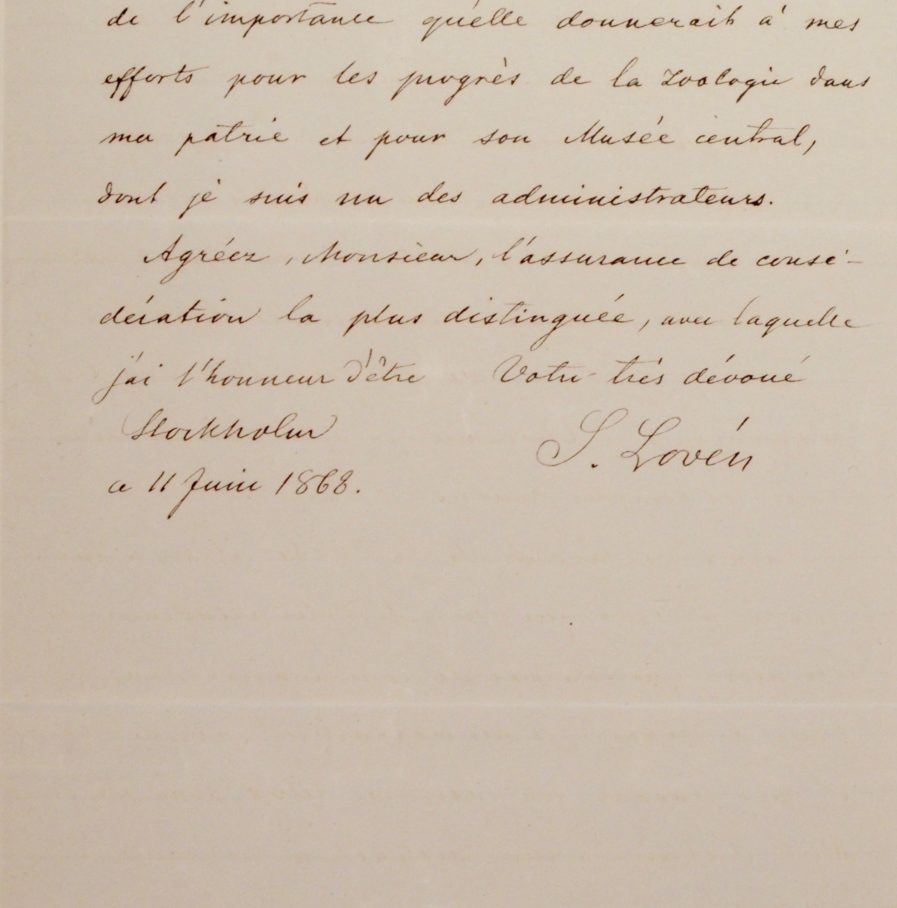 de l'importance qu'elle donnerait à mes
efforts pour les progrès de la Zoologie dans
ma patrie et pour son Musée central,
dont je suis un des administrateurs.
Agréez, Monsieur, l'assurance de consi-
dération la plus distinguée, avec laquelle
j'ai l'honneur d'être Votre très dévoué
Stockholm
ce 11 Juin 1868.
S. Lovén